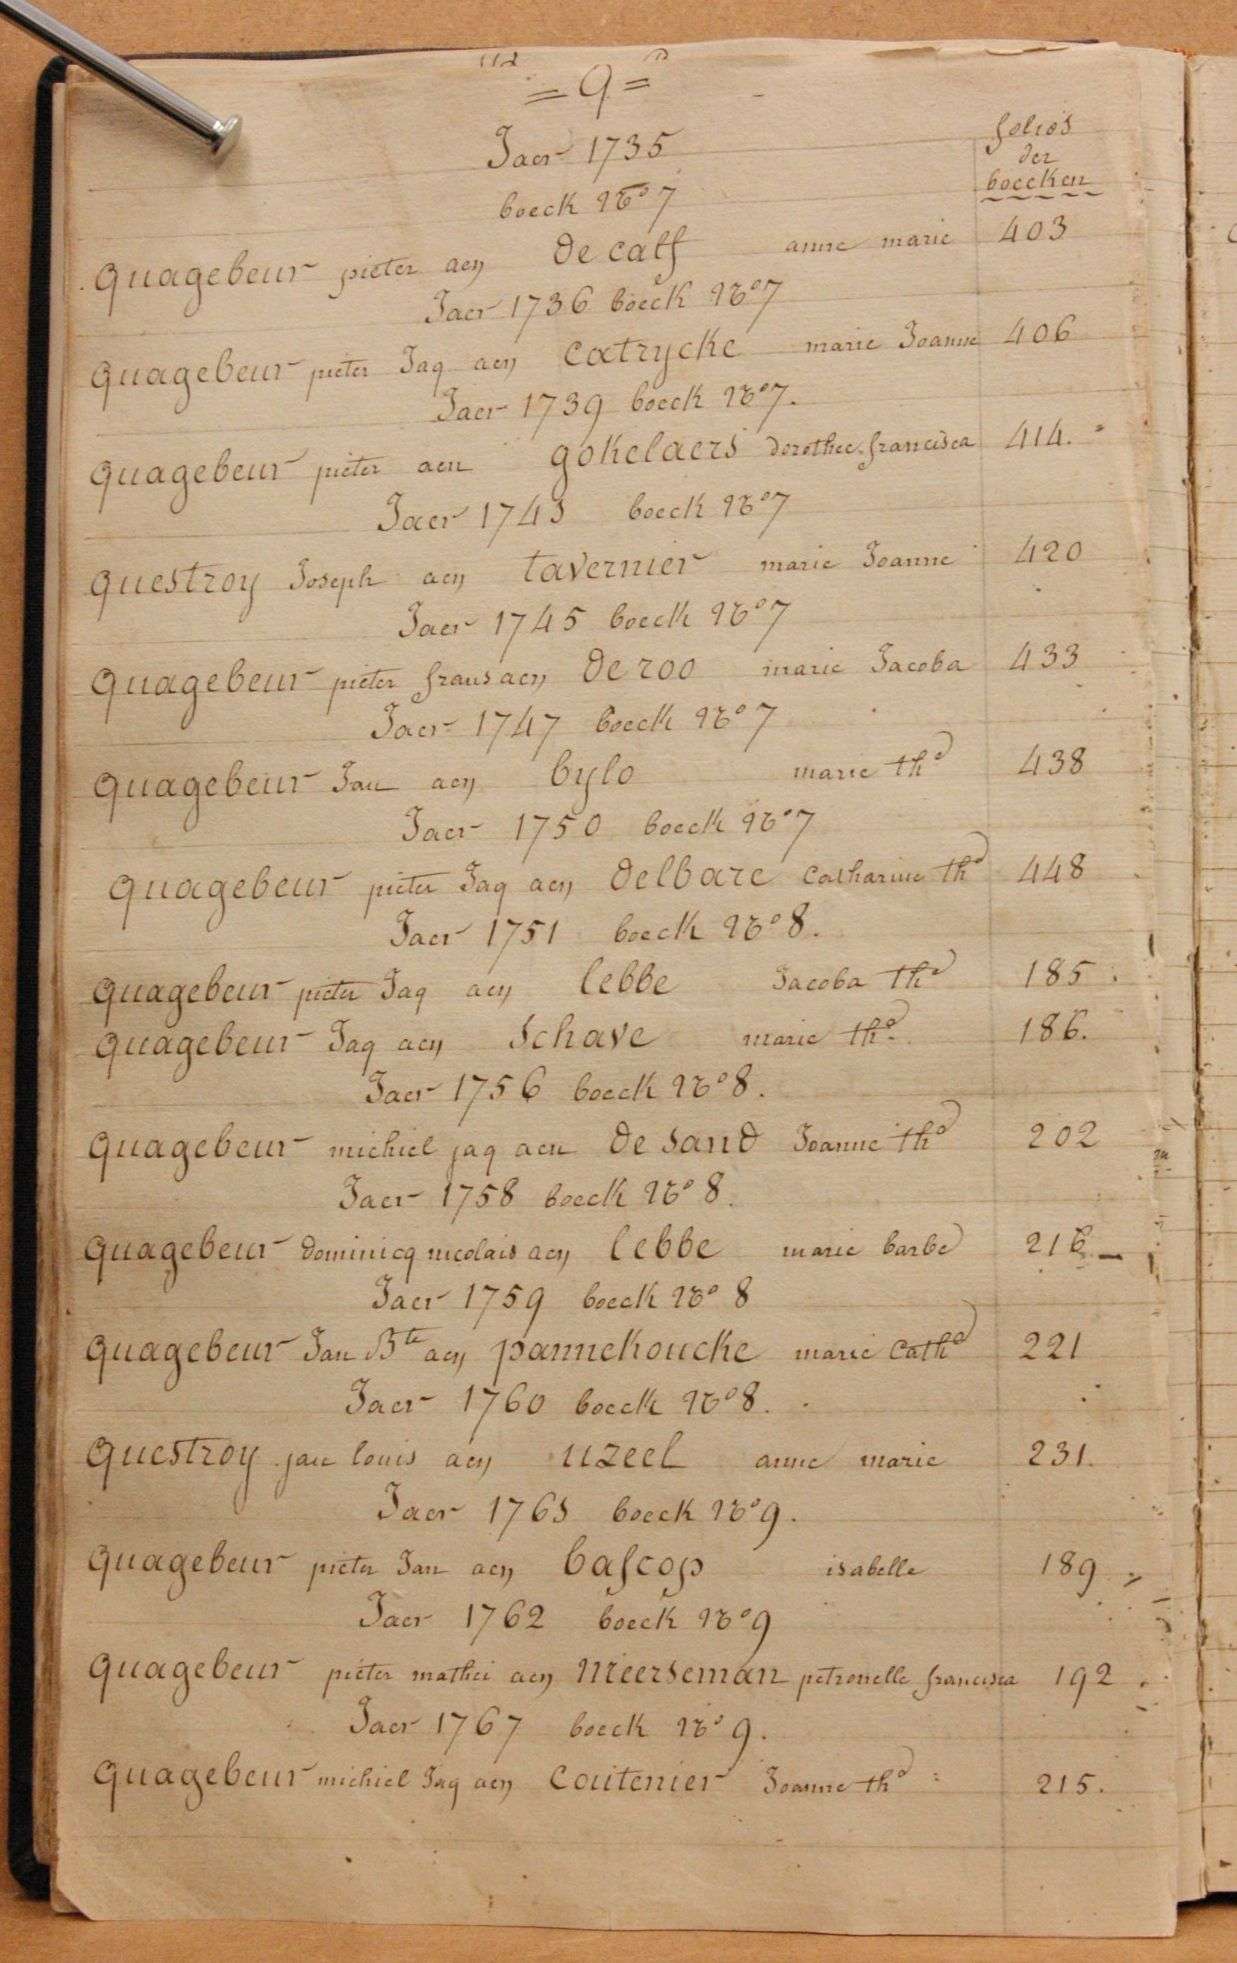 = Q =
folio's
der
boecken
Jaer 1735
boeck No 7
Quagebeur pieter aen De calf anne marie 403
Jaer 1736 boeck No 7
Quagebeur pieter Jaq aen Catrycke marie Joanne 406
Jaer 1739 boeck No 7.
Quagebeur pieter aen gokelaers dorothee francisca 414.
Jaer 1743 boeck No 7
Questroy Joseph aen tavernier marie Joanne 420
Jaer 1745 boeck No 7
Quagebeur pieter frans aen De roo marie Jacoba 433
Jaer 1747 boeck No 7
Quagebeur Jan aen bylo marie tha 438
Jaer 1750 boeck No 7
Quagebeur pieter Jaq aen Delbare Catharine tha 448
Jaer 1751 boeck No 8.
Quagebeur pieter Jaq aen lebbe Jacoba tha 185
Quagebeur Jaq aen Schave marie tha 186.
Jaer 1756 boeck No 8.
Quagebeur michiel jaq aen De Sand Joanne tha 202
Jaer 1758 boeck No 8.
Quagebeur Dominicq nicolais aen lebbe marie barbe 216
Jaer 1759 boeck No 8
Quagebeur Jan Bte aen pannekoucke marie Catha 221
Jaer 1760 boeck No 8.
Questroy jan louis aen uzeel anne marie 231.
Jaer 1763 boeck No 9.
Quagebeur pieter Jan aen bascop isabelle 189
Jaer 1762 boeck No 9
Quagebeur pieter mathei aen Meerseman petronelle francisca 192
Jaer 1767 boeck No 9.
Quagebeur michiel Jaq aen Coutenier Joanne tha 215.